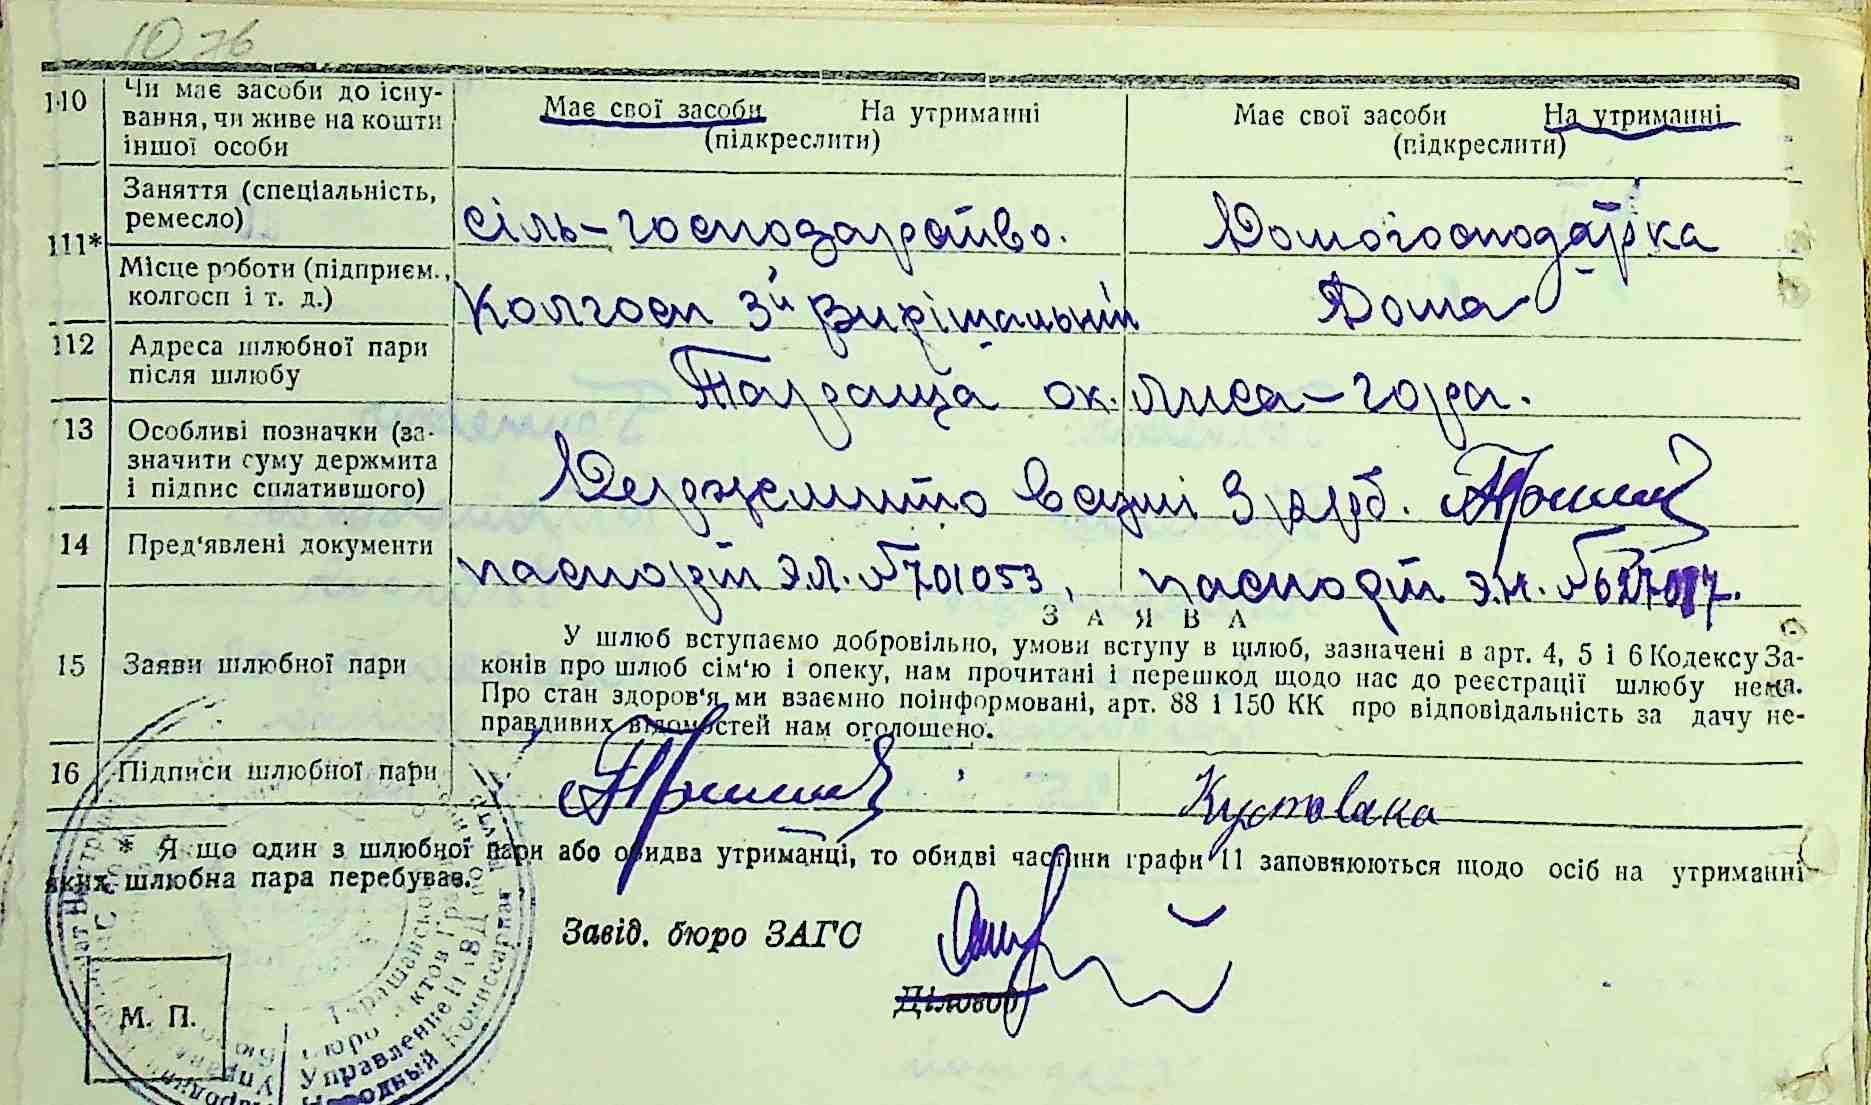 10 зв
110 Чи має засоби до існу-
вання, чи живе на кошти
іншої особи
Має свої засоби На утриманні
(підкреслити)
Має свої засоби На утриманні
(підкреслити)
111* Заняття (спеціальність,
ремесло)
сіль-господарство.
Домогосподарка
Місце роботи (підприєм.,
колгосп і т. д.)
Колгосп 3й Вирішальній
Дома
112 Адреса шлюбної пари
після шлюбу
Тараща ок. Лиса-гора.
13 Особливі позначки (за-
значити суму держмита
і підпис сплатившого)
Держмито в сумі 3 руб.
14 Пред'явлені документи
паспорт Э.Л. № 701053, паспорт Э.Л. №
ЗАЯВА
15 Заяви шлюбної пари
У шлюб вступаємо добровільно, умови вступу в цілюб, зазначені в арт. 4, 5 і 6 Кодексу За-
конів про шлюб сім'ю і опеку, нам прочитані і перешкод щодо нас до реєстрації шлюбу нема.
Про стан здоров'я ми взаємно поінформовані, арт. 88 і 150 КК про відповідальність за дачу не-
правдивих відомостей нам оголошено.
16 Підписи шлюбної пари
* Я що один з шлюбної пари або обидва утриманці, то обидві частини графи 11 заповнюються щодо осіб на утриманні
яких шлюбна пара перебував.
Завід. бюро ЗАГС
Діловод
М. П.
Управление НКВД по
Народный Комиссариат